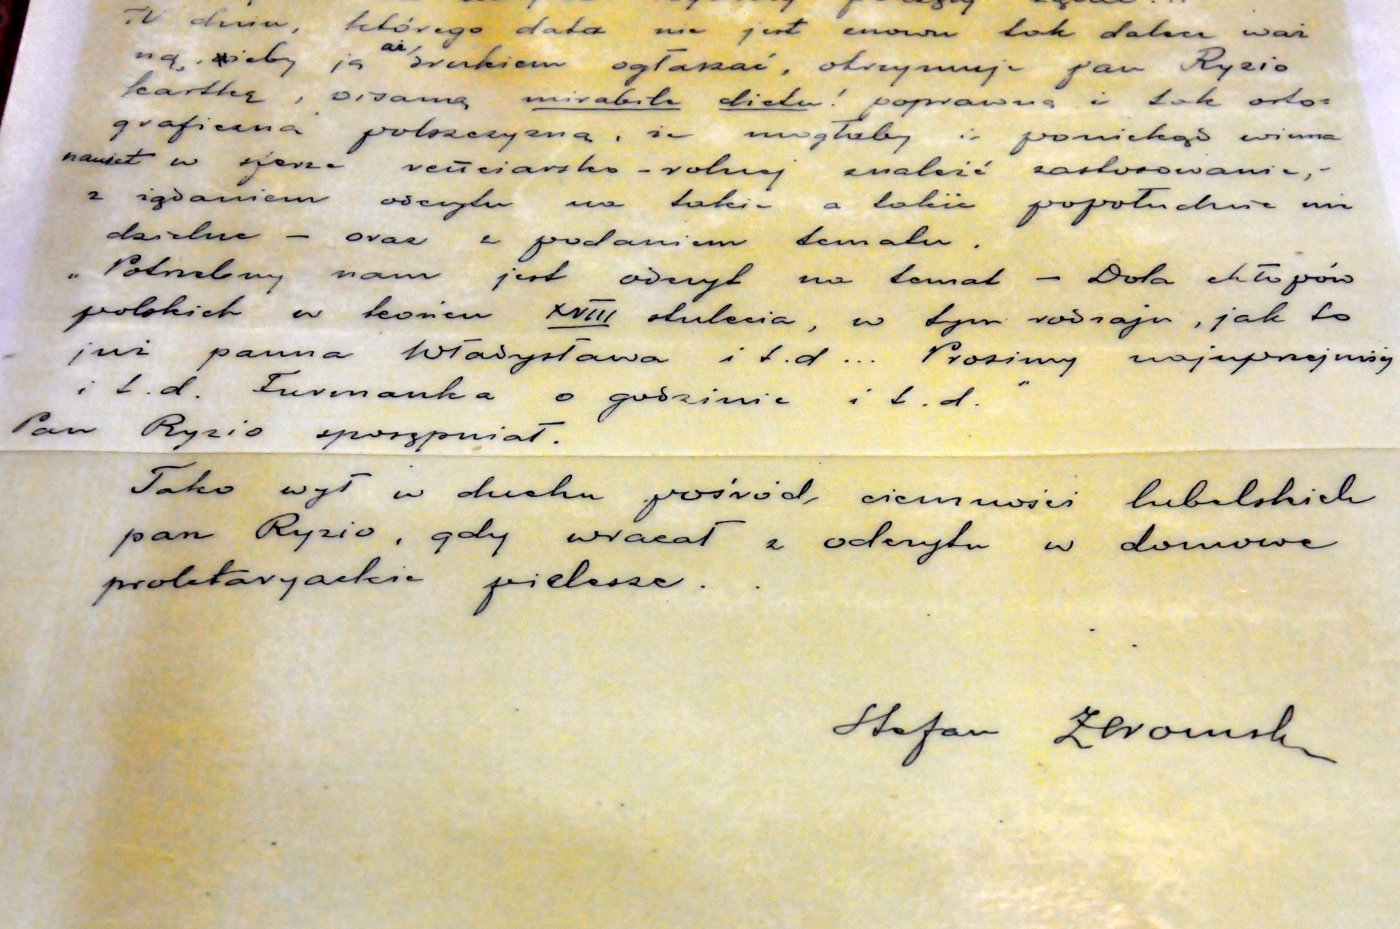 W dniu, którego data nie jest znowu tak dalece waż
ną, żeby ją aż drukiem ogłaszać, otrzymuje pan Ryzio
kartkę, pisaną mirabile dictu! poprawną i tak orto=
graficzną polszczyzną, że mogłaby i poniekąd winna
nawet w sferze reńciarsko-rolnej znaleźć zastosowanie,-
z żądaniem odczytu na takie a takie popołudnie nie
dzielne - oraz z podaniem tematu.
„Potrzebny nam jest odczyt na temat - Dola chłopów
polskich w końcu XVIII stulecia, w tym rodzaju, jak to
już panna Władysława i t.d... Prosimy najuprzejmiej
i t.d. Furmanka o godzinie i t.d."
Pan Ryzio sposępniał.
Tako wył w duchu pośród ciemności lubelskich
pan Ryzio, gdy wracał z odczytu w domowe
proletaryackie pielesze.
Stefan Żeromski